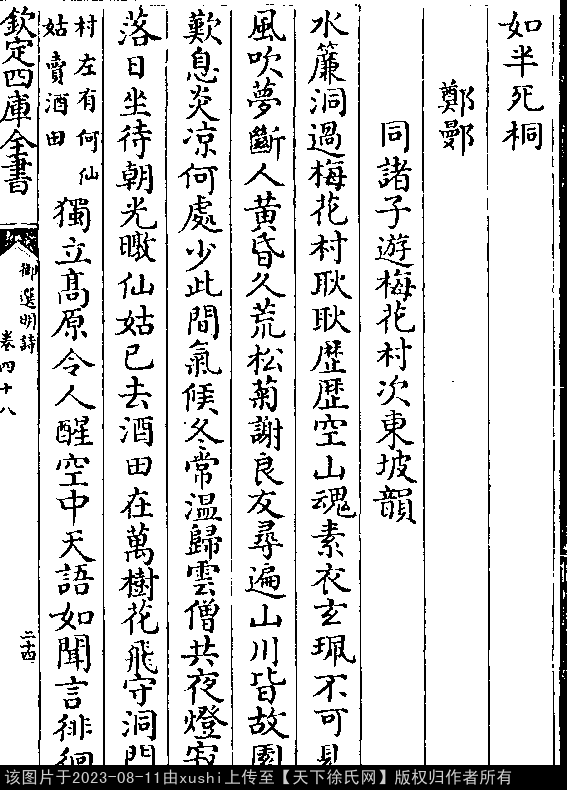 如半死桐
鄭鄤
同諸子遊梅花村次東坡韻
水簾洞過梅花村耿耿歴歴空山魂素衣玄珮不可見
風吹夢斷人黄昏久荒松菊謝良友尋遍山川皆故園
歎息炎凉何處少此間氣候冬常温歸雲僧共夜燈寂
落日坐待朝光暾仙姑已去酒田在萬樹花飛守洞門
村左有何仙
姑賣酒田
獨立髙原令人醒空中天語如聞言徘徊
欽定四庫全書
御選明詩
卷四十八
二十四
该图片于2023-08-11由xushi上传至【天下徐氏网】版权归作者所有